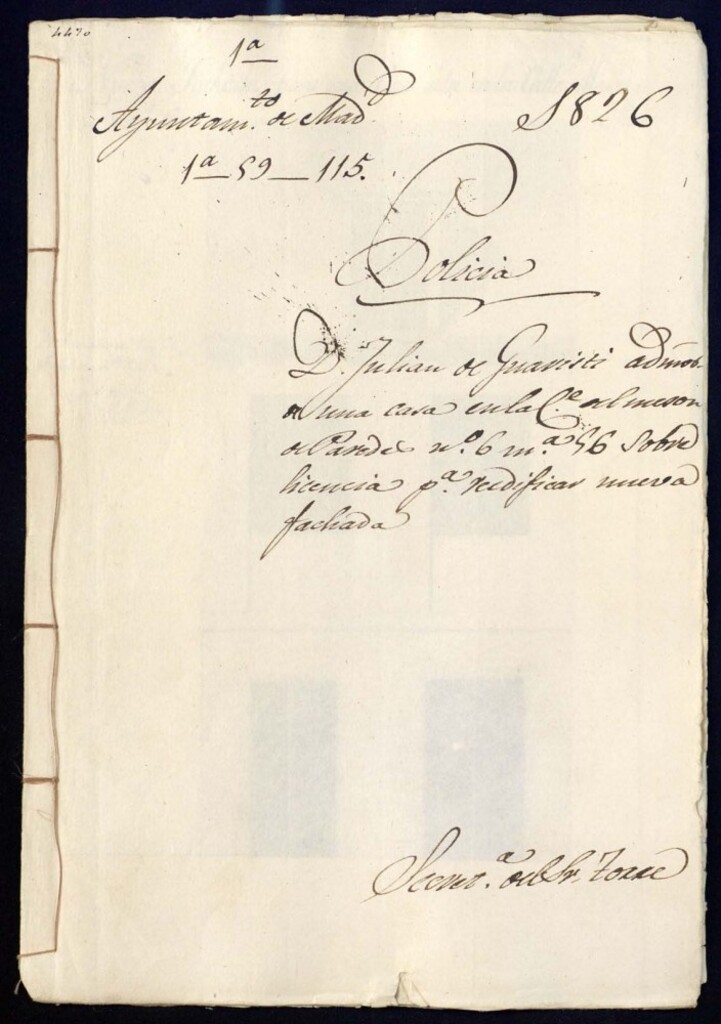 1ª
Ayuntam.to de Mad.d
1826
1ª_59_115.
Policia
D. Julian de Guaristi admor.
de una casa en la C.e del meson
de Paredes n.º 6 m.ª 56 sobre
licencia p.ª redificar nueva
fachada
Secret.ª del Sr. Torre